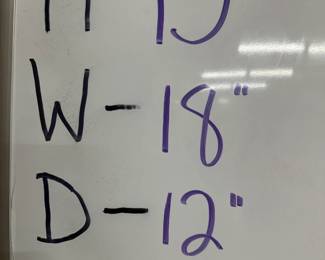 W - 18"
D - 12"